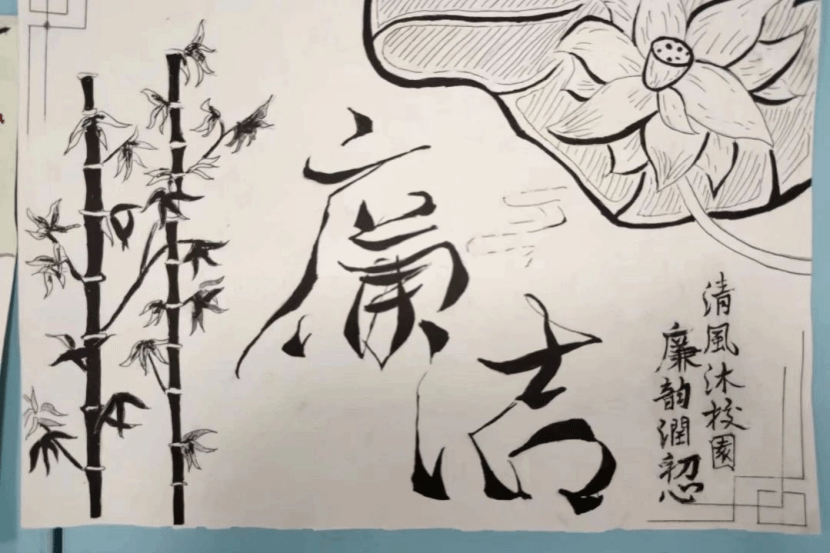 廉洁
清風沐校園
廉韵潤初心